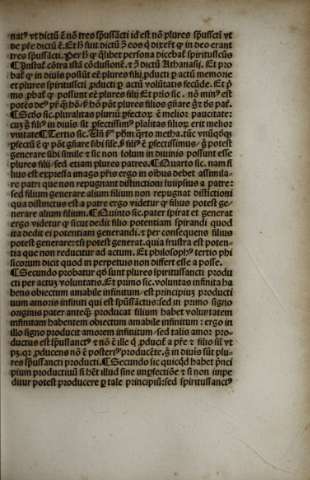 natꝰ vt dictū ē nō tres spūssācti id est nō plures spūsscti vt
de pr̄e dictū ē. Et h̄ sūt dictū ꝯ eos q̄ dixerūt ꝙ in deo erant
tres spūssācti. Per h̄ ꝙ q̄libet persona dicebaꝶ spiritusscūs
cōtra istā cōclusionē. ꝛ ꝯ dictū Athanasij. Et pro
baꝶ ꝙ in diuis possūt eē plures filij ꝓducti ꝑ actū memorie
et plures spiritusscti ꝓducti ꝑ actū volūtatis fecūde. Et p̄
mo ꝓbaꝶ ꝙ possunt eē plures filij Et p̄mo sic. nō min⁹ est
plures filios gn̄are
Scd̄o sic. pluralitas pluriū ꝑfectorū ē melior paucitate:
cuꝫ g̊ sit in diuis sit ꝑfectissim⁹ plalitas filiorū erit melior
vnitate Tertio sic. ph̄m q̄rto metha. tūc vnūq̄dqꝫ
ꝑfectū ē ꝙ pōt gn̄are sibi sile. sꝫ fili⁹ ē ꝑfectissimus: g̊ potest
generare sibi simile ꝛ sic non solum in diuinio possunt esse
plures filij: sed etiam plures patres. Quarto sic. nam fi
lius est expressa imago pr̄is ergo in oībus debet assimila-
re patri que non repugnant distinctioni suipsius a patre:
sed filium generare alium filium non repugnat distinctioni
qua distinctus est a patre ergo videtur ꝙ filius potest ge-
nerare alium filium. Quinto sic. pater spirat et generat
ergo videtur ꝙ sicut dedit filio potentiam spirandi quod
ita dederit ei potentiam generandi. ꝛ per consequens filius
potest generare: et si potest generat. quia frustra est poten-
tia que non reducitur ad actum. Et philosoph⁹ tertio phi
sicorum dicit quod in perpetuis non differt esse a posse.
Secundo probatur ꝙ sunt plures spiritussancti produ
cti per actum voluntatis. Et primo sic. voluntas infinita ha
bens obiectum amabile infinitum est principiuꝫ producti
uum amoris infiniti qui est spūssāctus: sed in primo signo
originis pater anteꝙ producat filium habet voluntatem
infinitam habentem obiectum amabile infinitum: ergo in
illo signo producit amorem infinitum sed talis amor pro-
ductus est spūssanct⁹ ꝛ nō ē ille q̄ ꝓduciꝶ a pr̄e ꝛ filio sil̄ vt
producens nō ē posterꝰ producēte. g̊ in diuis sūt plu-
res spūssancti producti. Secundo sic quicqd̄ habet pn̄ci
pium productiuū si h̄et illud sine imꝑfectiōe ꝛ si non impe
ditur potest producere ꝙ tale principiū: sed spiritussanct⁹